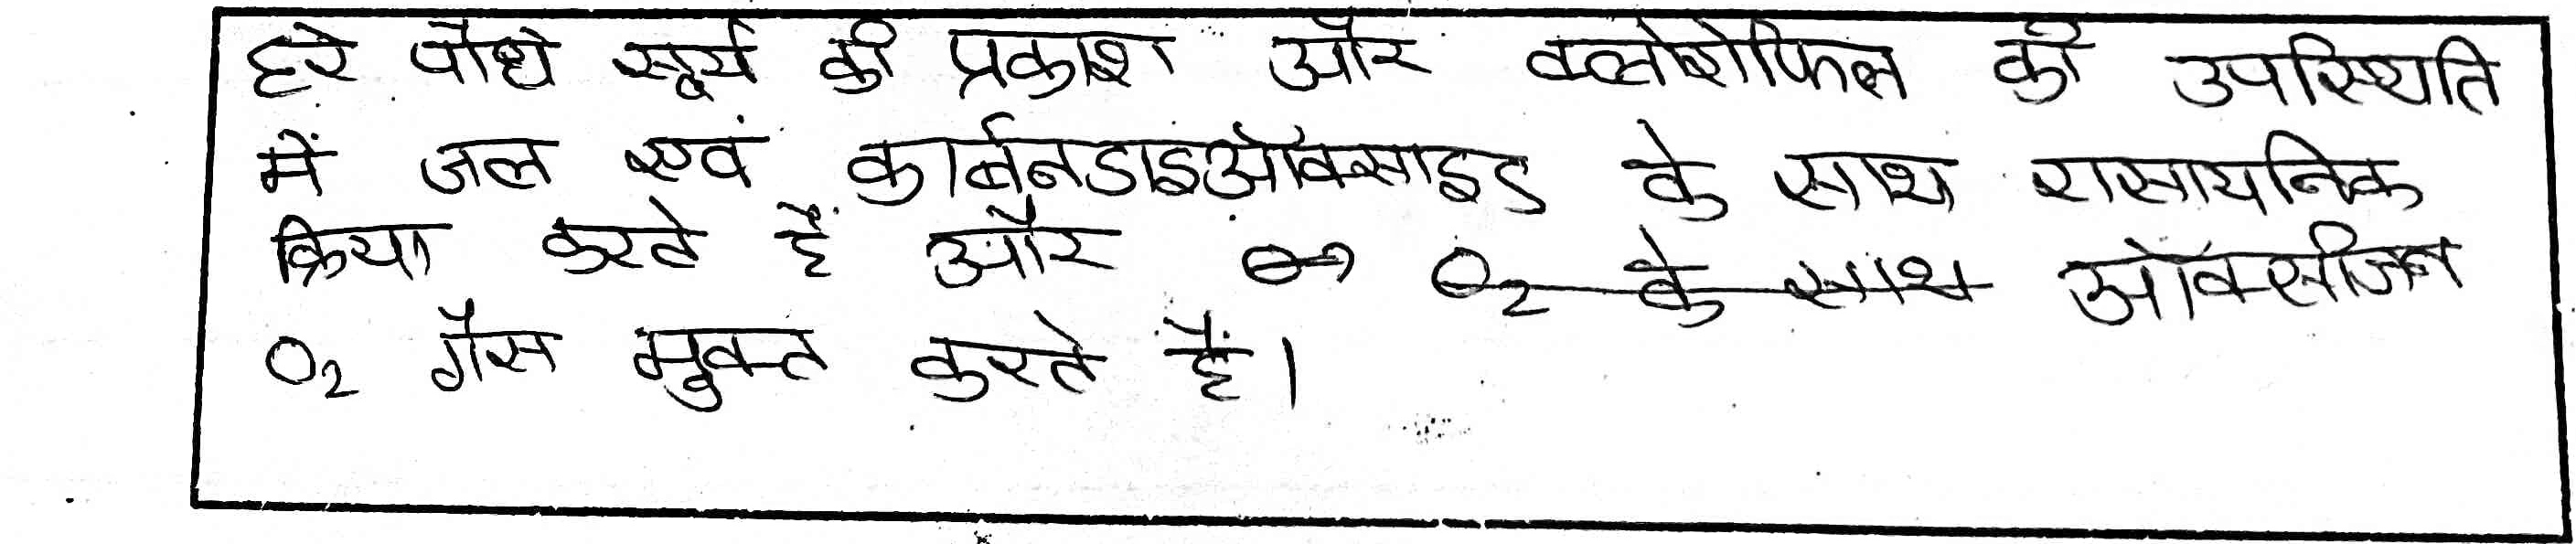 हरे पौधे सूर्य की प्रकाश और क्लोरोफिल की उपस्थिति
में जल एवं कार्बनडाइऑक्साइड के साथ रासायनिक
क्रिया करते हैं और O2 के साथ ऑक्सीजन
O2 गैस मुक्त करते हैं।